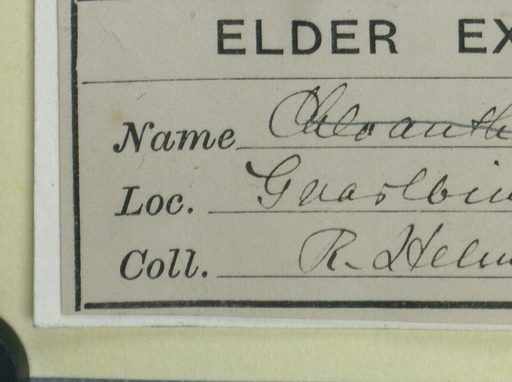 ELDER EX
Name Chloanth
Loc. Gnarlbin
Coll. R. Helm